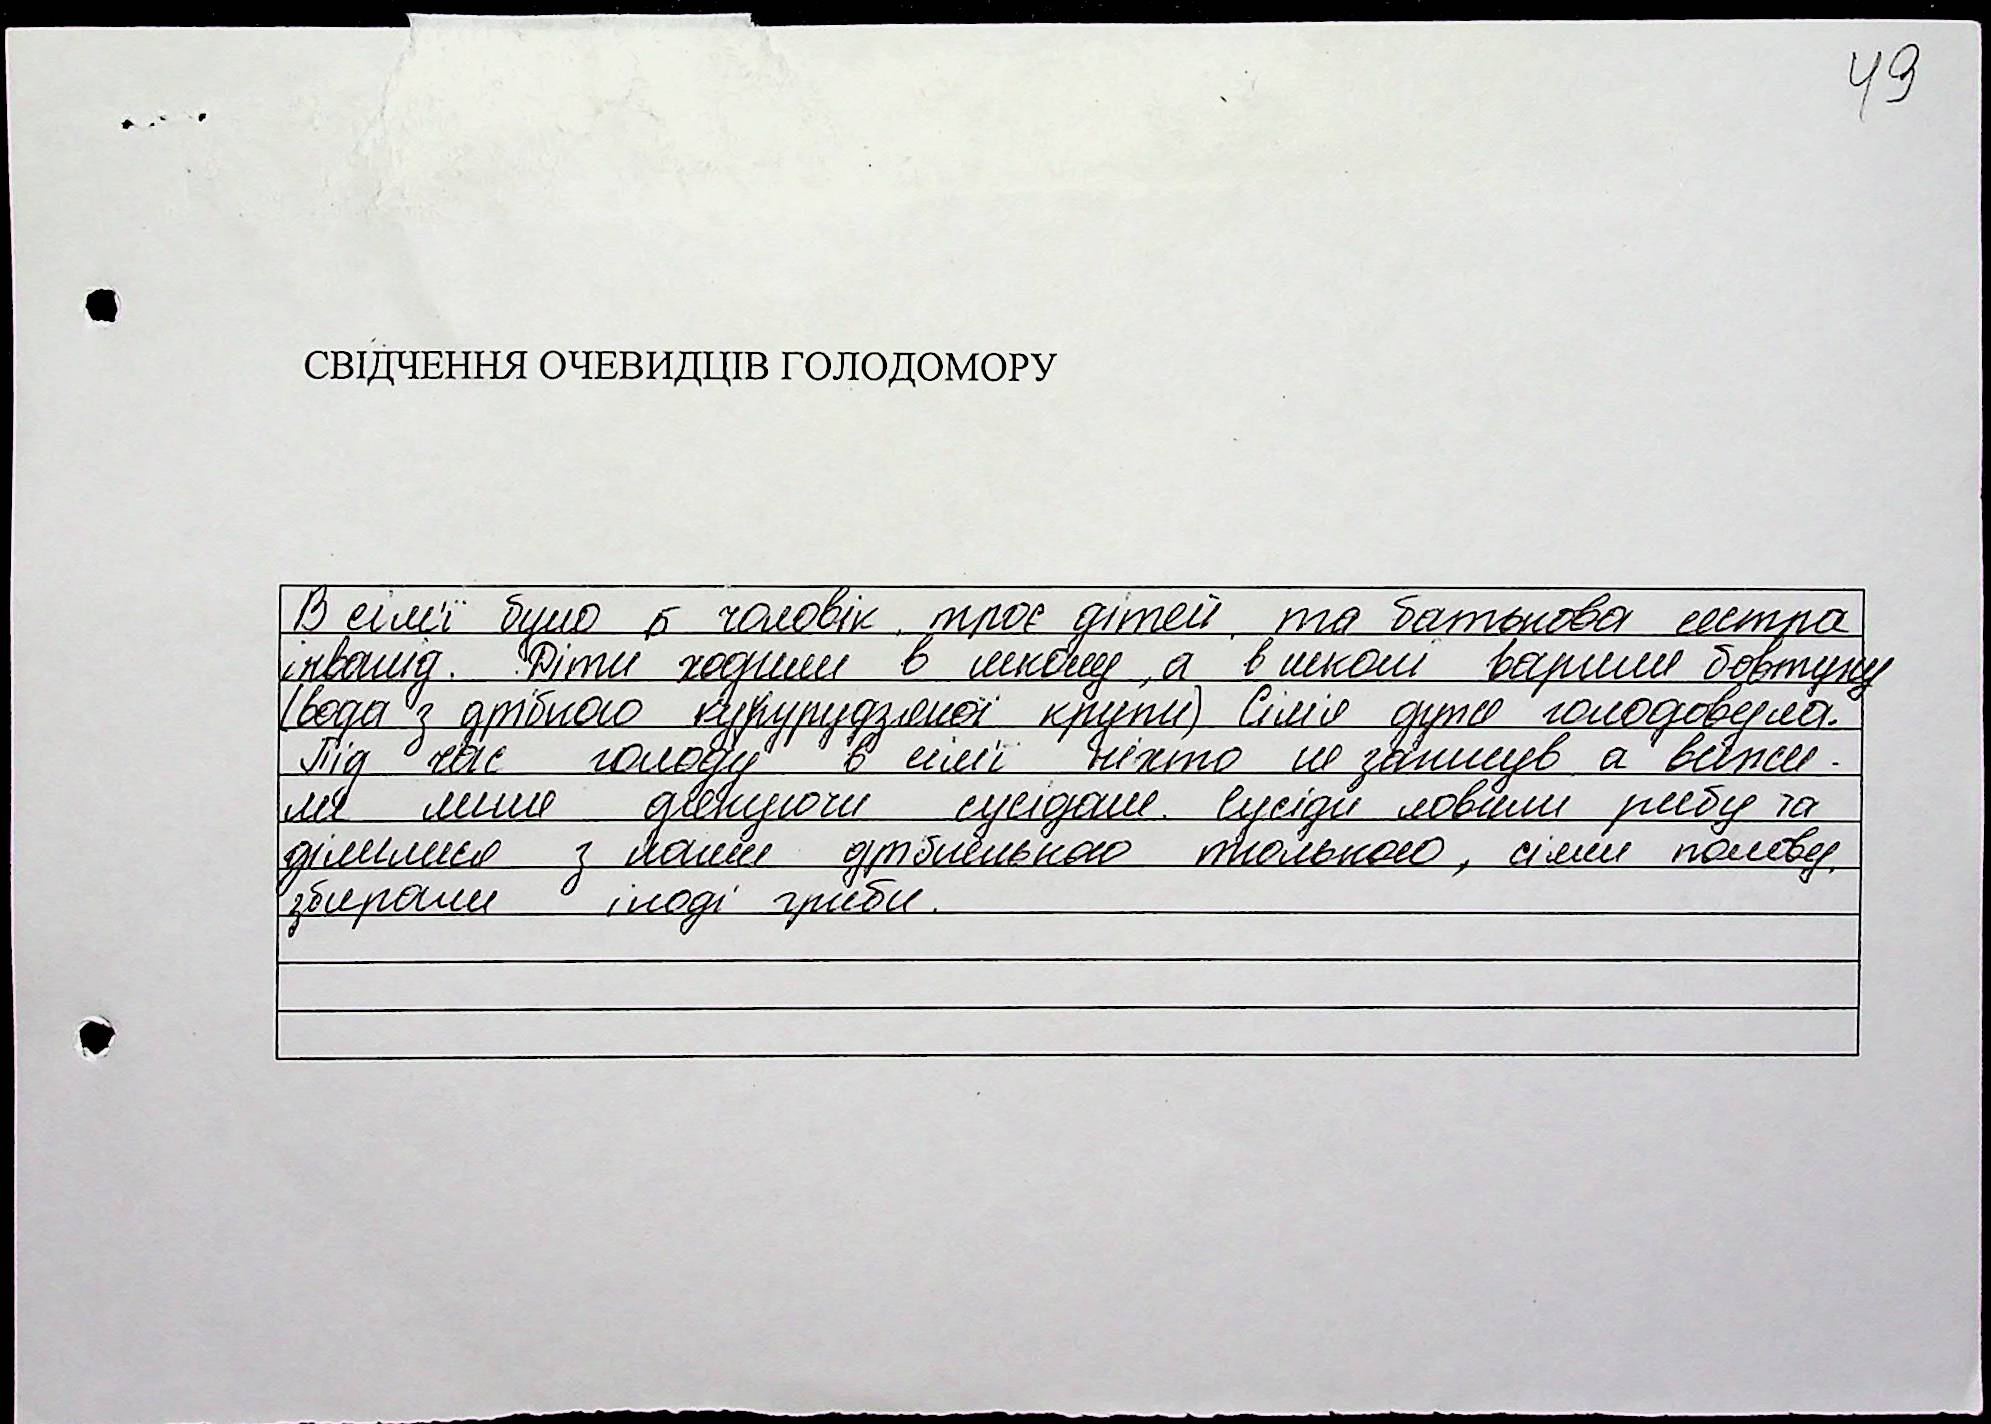 49
СВІДЧЕННЯ ОЧЕВИДЦІВ ГОЛОДОМОРУ
В сім'ї було 5 чоловік, троє дітей, та батькова сестра
інвалід. Діти ходили в школу, а в школі варили бовтуху
(вода з дрібною кукурудзяної крупи) Сім'я дуже голодовула.
Під час голоду в сім'ї ніхто не загинув, а вижи-
ли лише дякуючи сусідам. Сусіди ловили рибу та
ділилися з нами дрібненькою тюлькою, сіяли полову,
збирали іноді гриби.